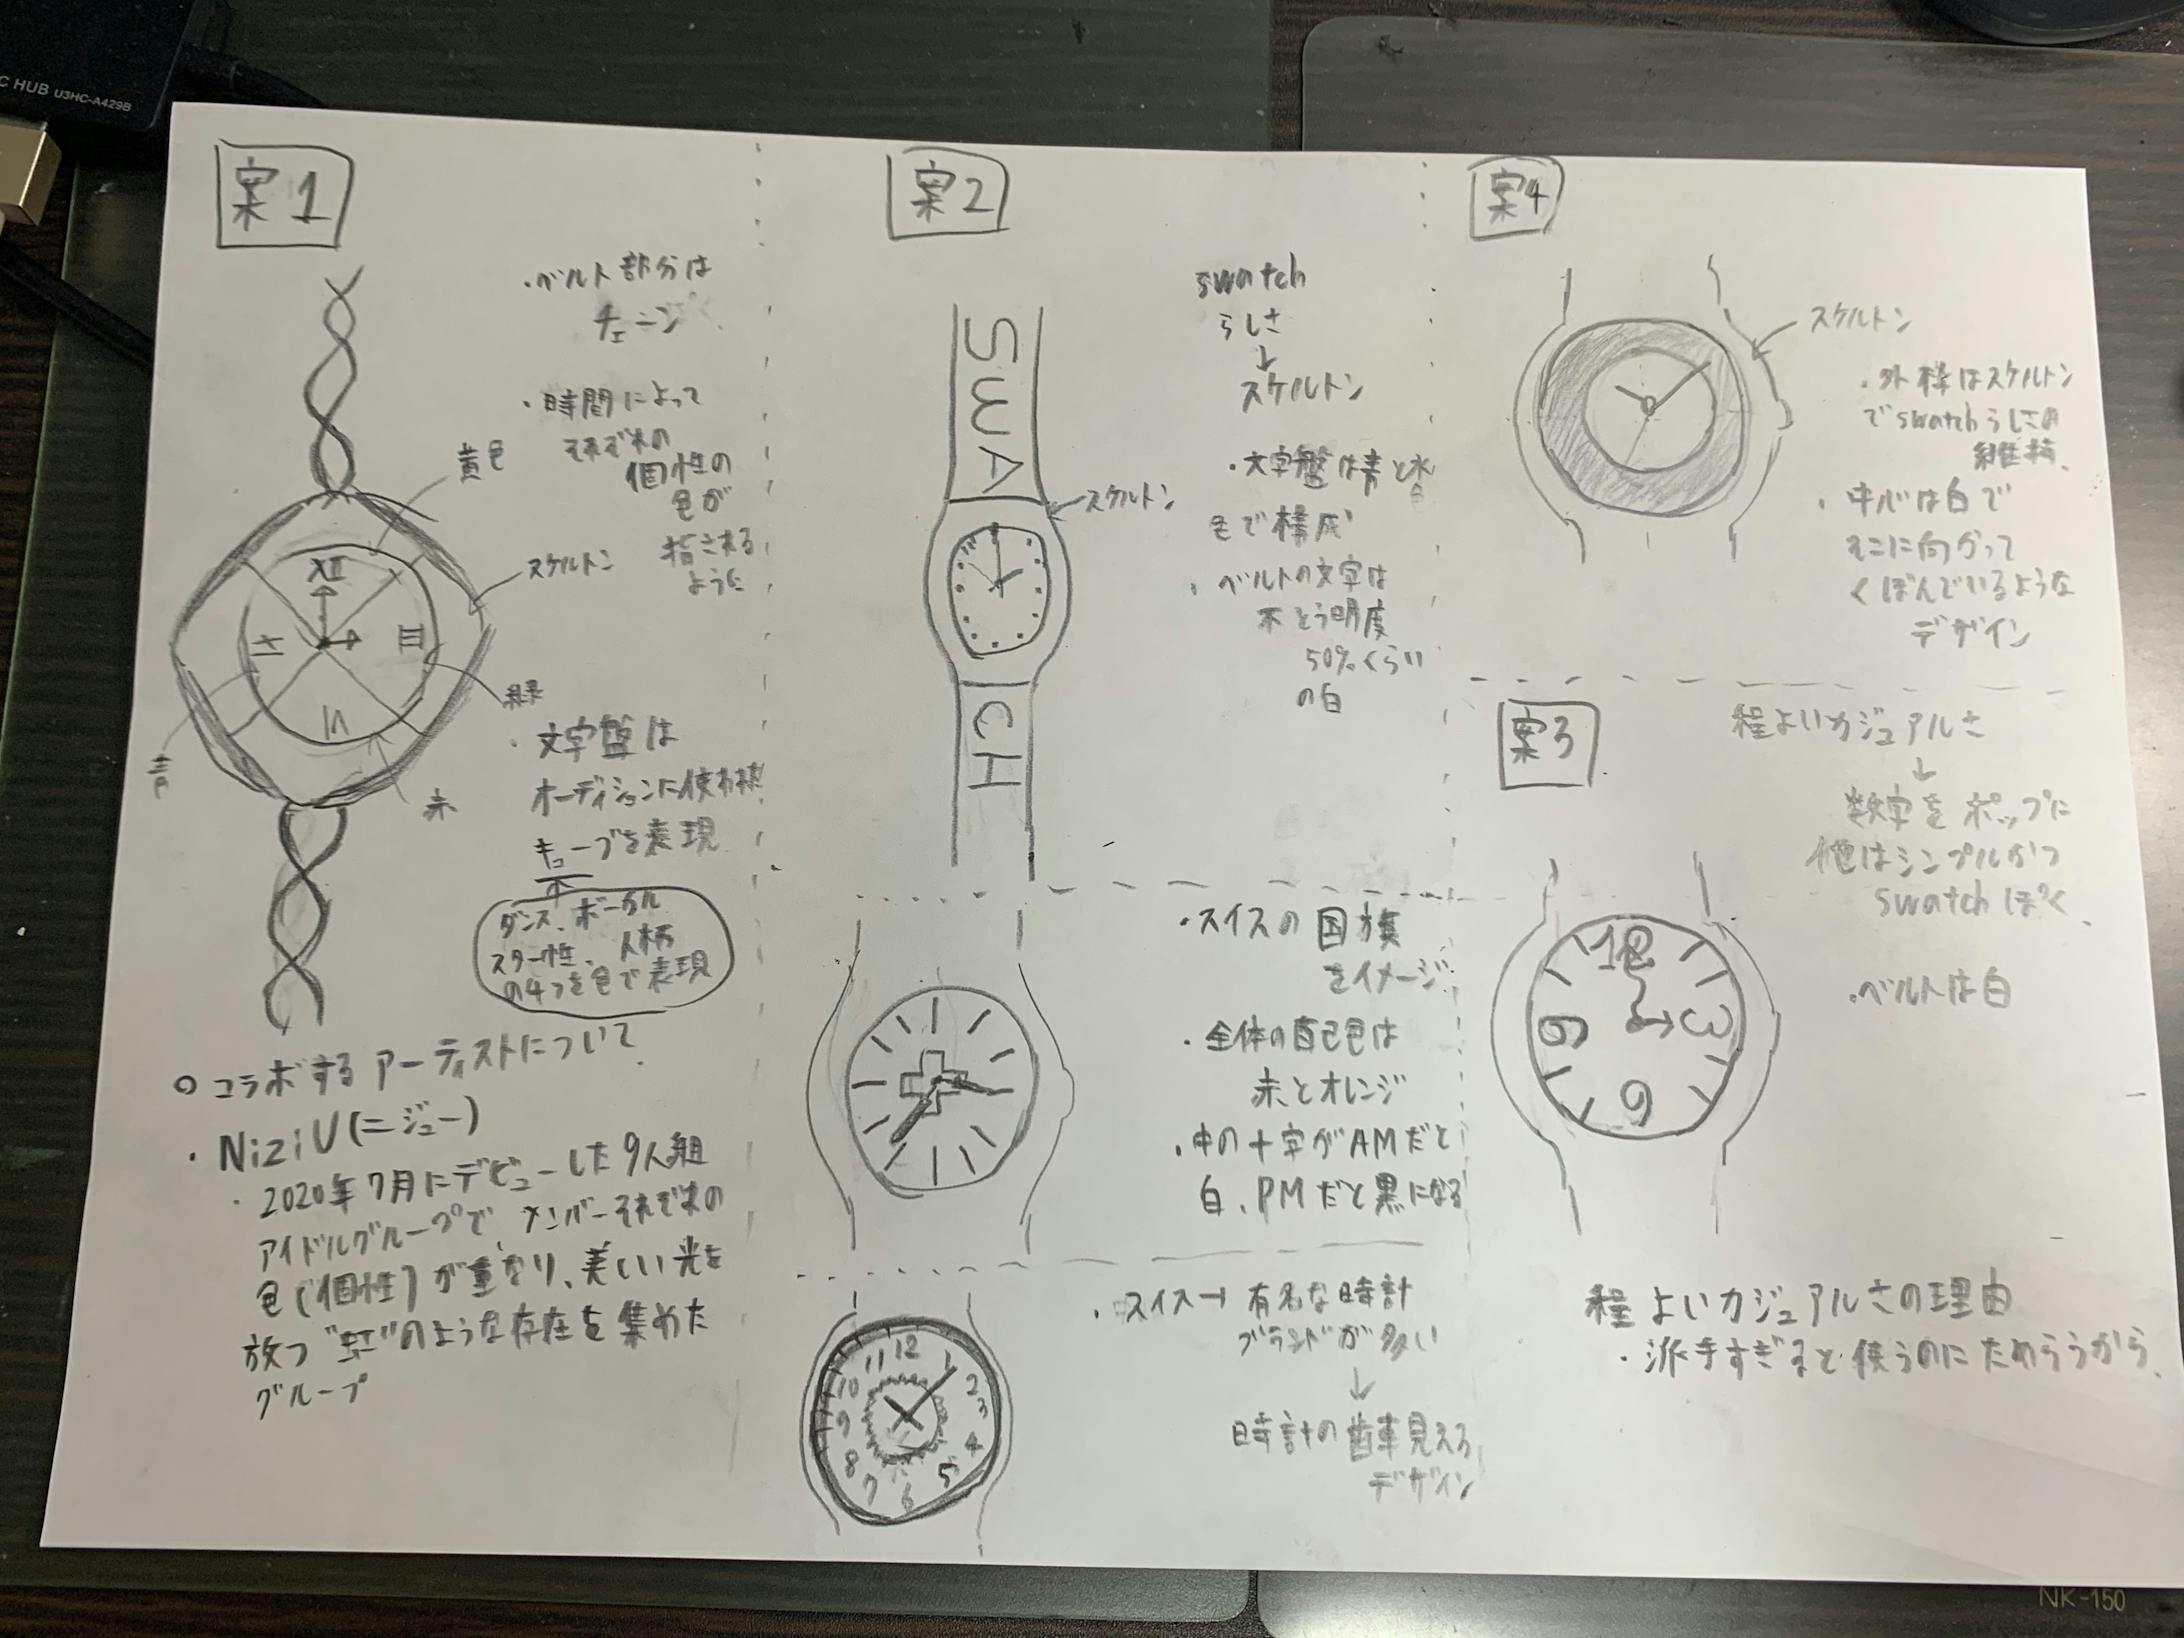 C HUB U3HC-A429B
案1
・ベルト部分は
チェーン
・時間によって
それぞれの
個性の
色が
指される
ように
黄色
スケルトン
XII
III
VI
緑
青
赤
・文字盤は
オーディションに使われた
キューブを表現
ダンス、ボーカル
スター性、人柄
の4つを色で表現
○コラボするアーティストについて
・NiziU(ニジュー)
・2020年7月にデビューした9人組
アイドルグループで、メンバーそれぞれの
色(個性)が重なり、美しい光を
放つ"虹"のような存在を集めた
グループ
案2
SWA
TCH
swatch
らしさ
↓
スケルトン
スケルトン
・文字盤は青と水
色で構成
・ベルトの文字は
不とう明度
50%くらい
の白
・スイスの国旗
をイメージ
・全体の配色は
赤とオレンジ
・中の十字がAMだと
白、PMだと黒になる
・スイス→有名な時計
ブランドが多い
↓
時計の歯車見える
デザイン
12 1 2 3 4 5 6 7 8 9 10 11
案4
スケルトン
・外枠はスケルトン
でswatchらしさの
維持
・中心は白で
そこに向かって
くぼんでいるような
デザイン
案3
程よいカジュアルさ
↓
数字をポップに
他はシンプルかつ
swatchぽく
・ベルトは白
12 3 6 9
程よいカジュアルさの理由
・派手すぎると使うのにためらうから
NK-150